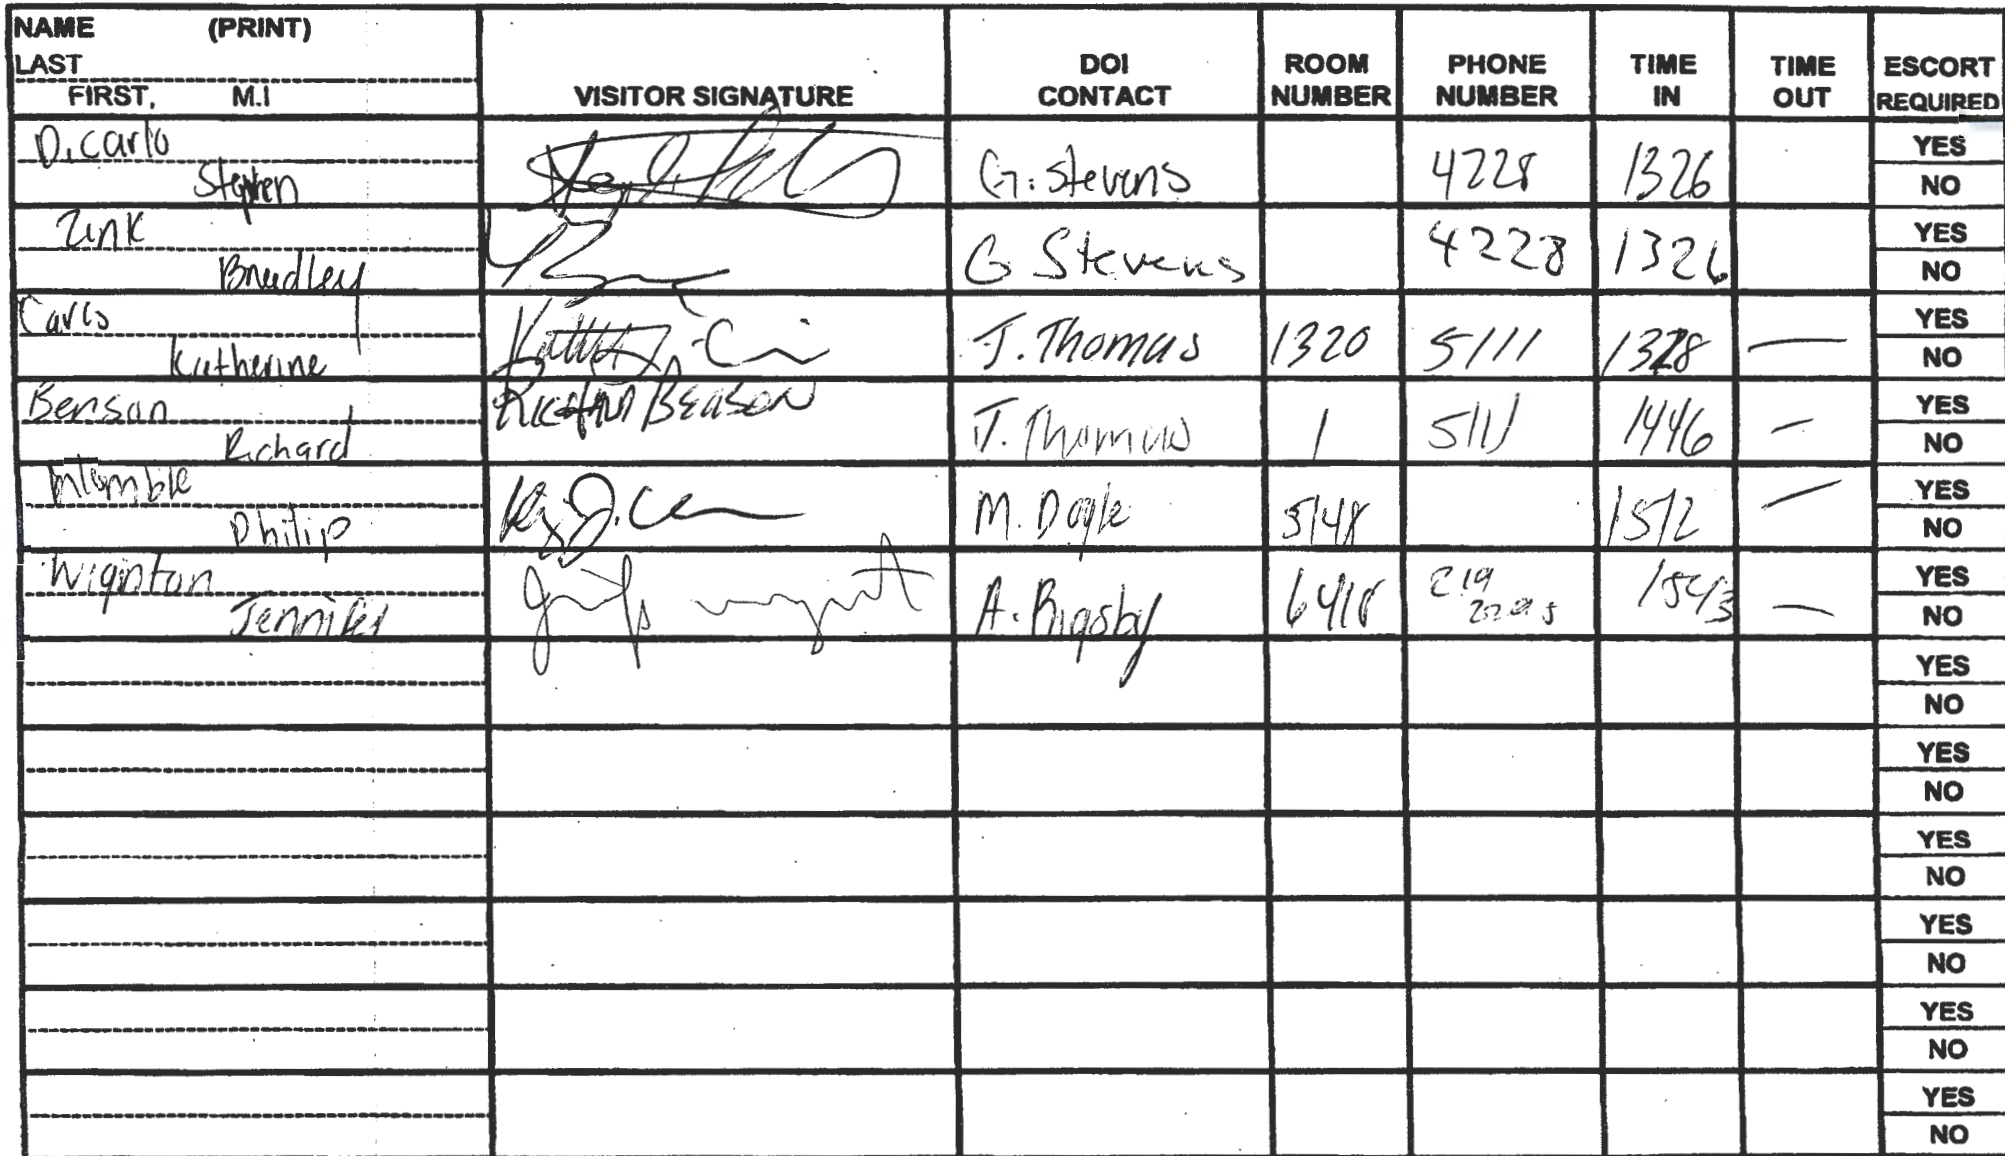 NAME (PRINT)
LAST
FIRST, M.I
VISITOR SIGNATURE
DOI CONTACT
ROOM NUMBER
PHONE NUMBER
TIME IN
TIME OUT
ESCORT REQUIRED
D.carlo
Stephen
G. Stevens 4228 1326
YES
NO
Zink
Bradley
G Stevens 4228 1326
YES
NO
Katherine
J. Thomas 1320 5111 1328 —
YES
NO
Benson
Richard
Richard Benson
J. Thomas 1 5111 1446 —
YES
NO
Philip
M. Doyle 5148 1512 —
YES
NO
Wignton
Jennifer
A. Rigsby 6418 219 1543 —
YES
NO
YES
NO
YES
NO
YES
NO
YES
NO
YES
NO
YES
NO